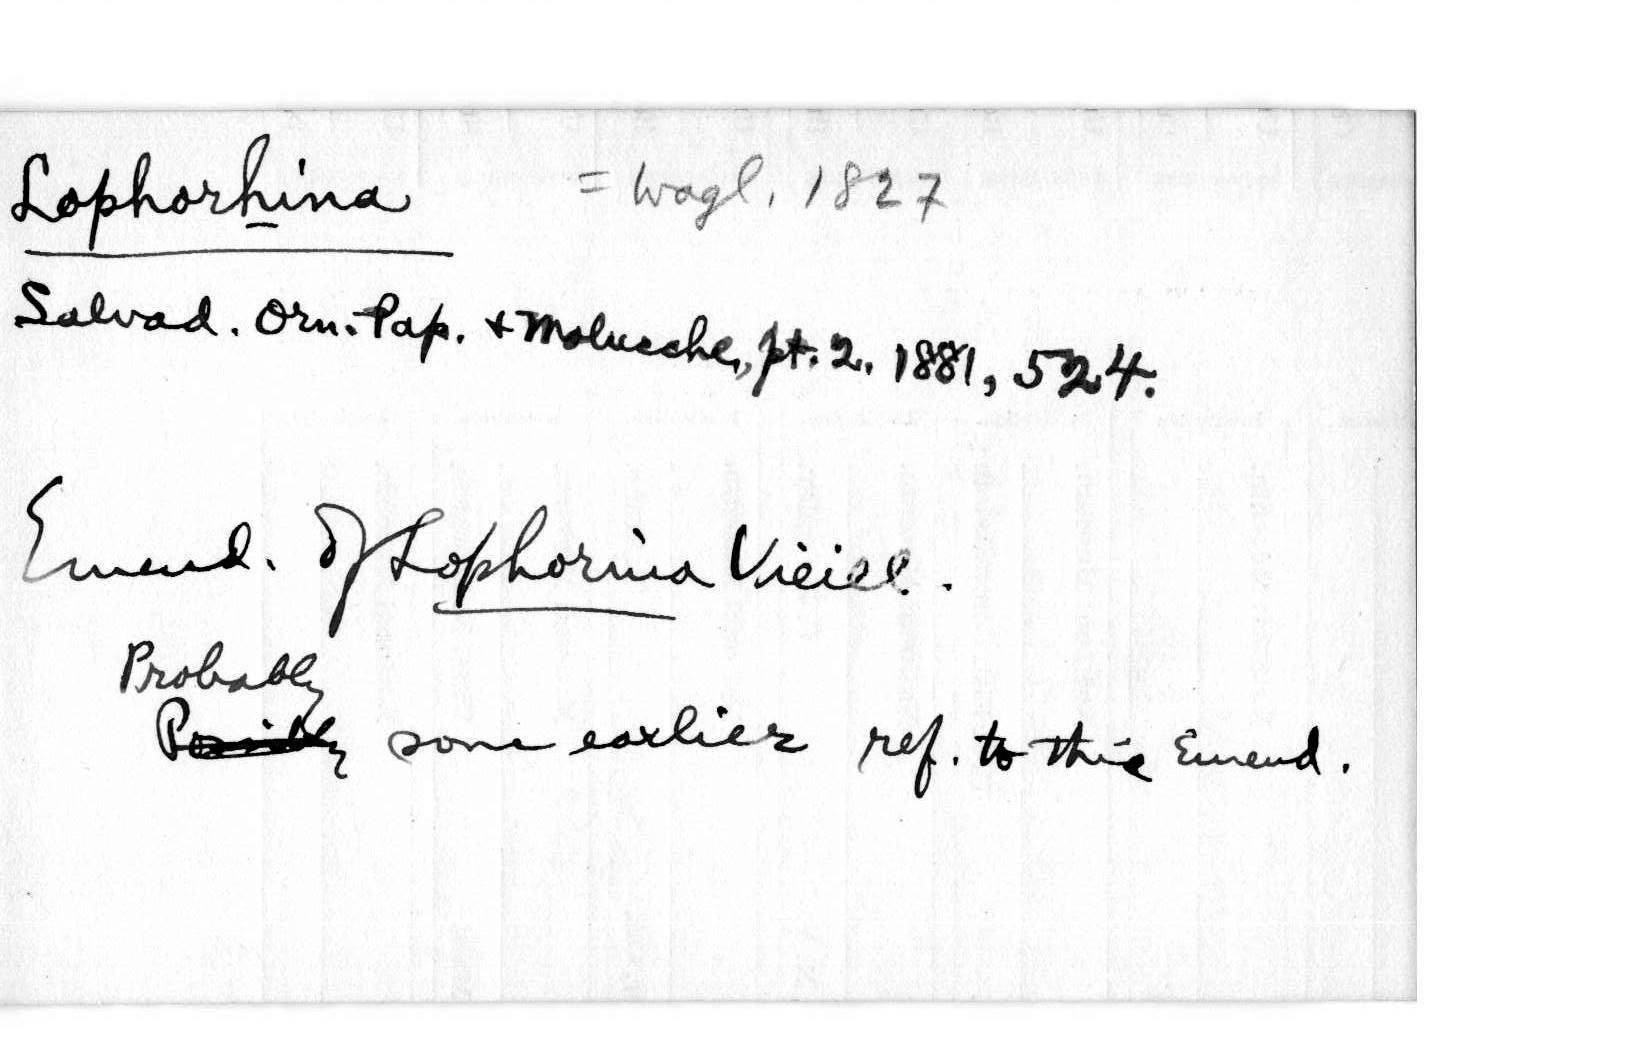 Lophorhina = Wagl. 1827
Salvad. Orn. Pap. + Molucche, pt. 2. 1881, 524.
Emend. of Lophorina Vieill.
Probably
Possibly some earlier ref. to this Emend.